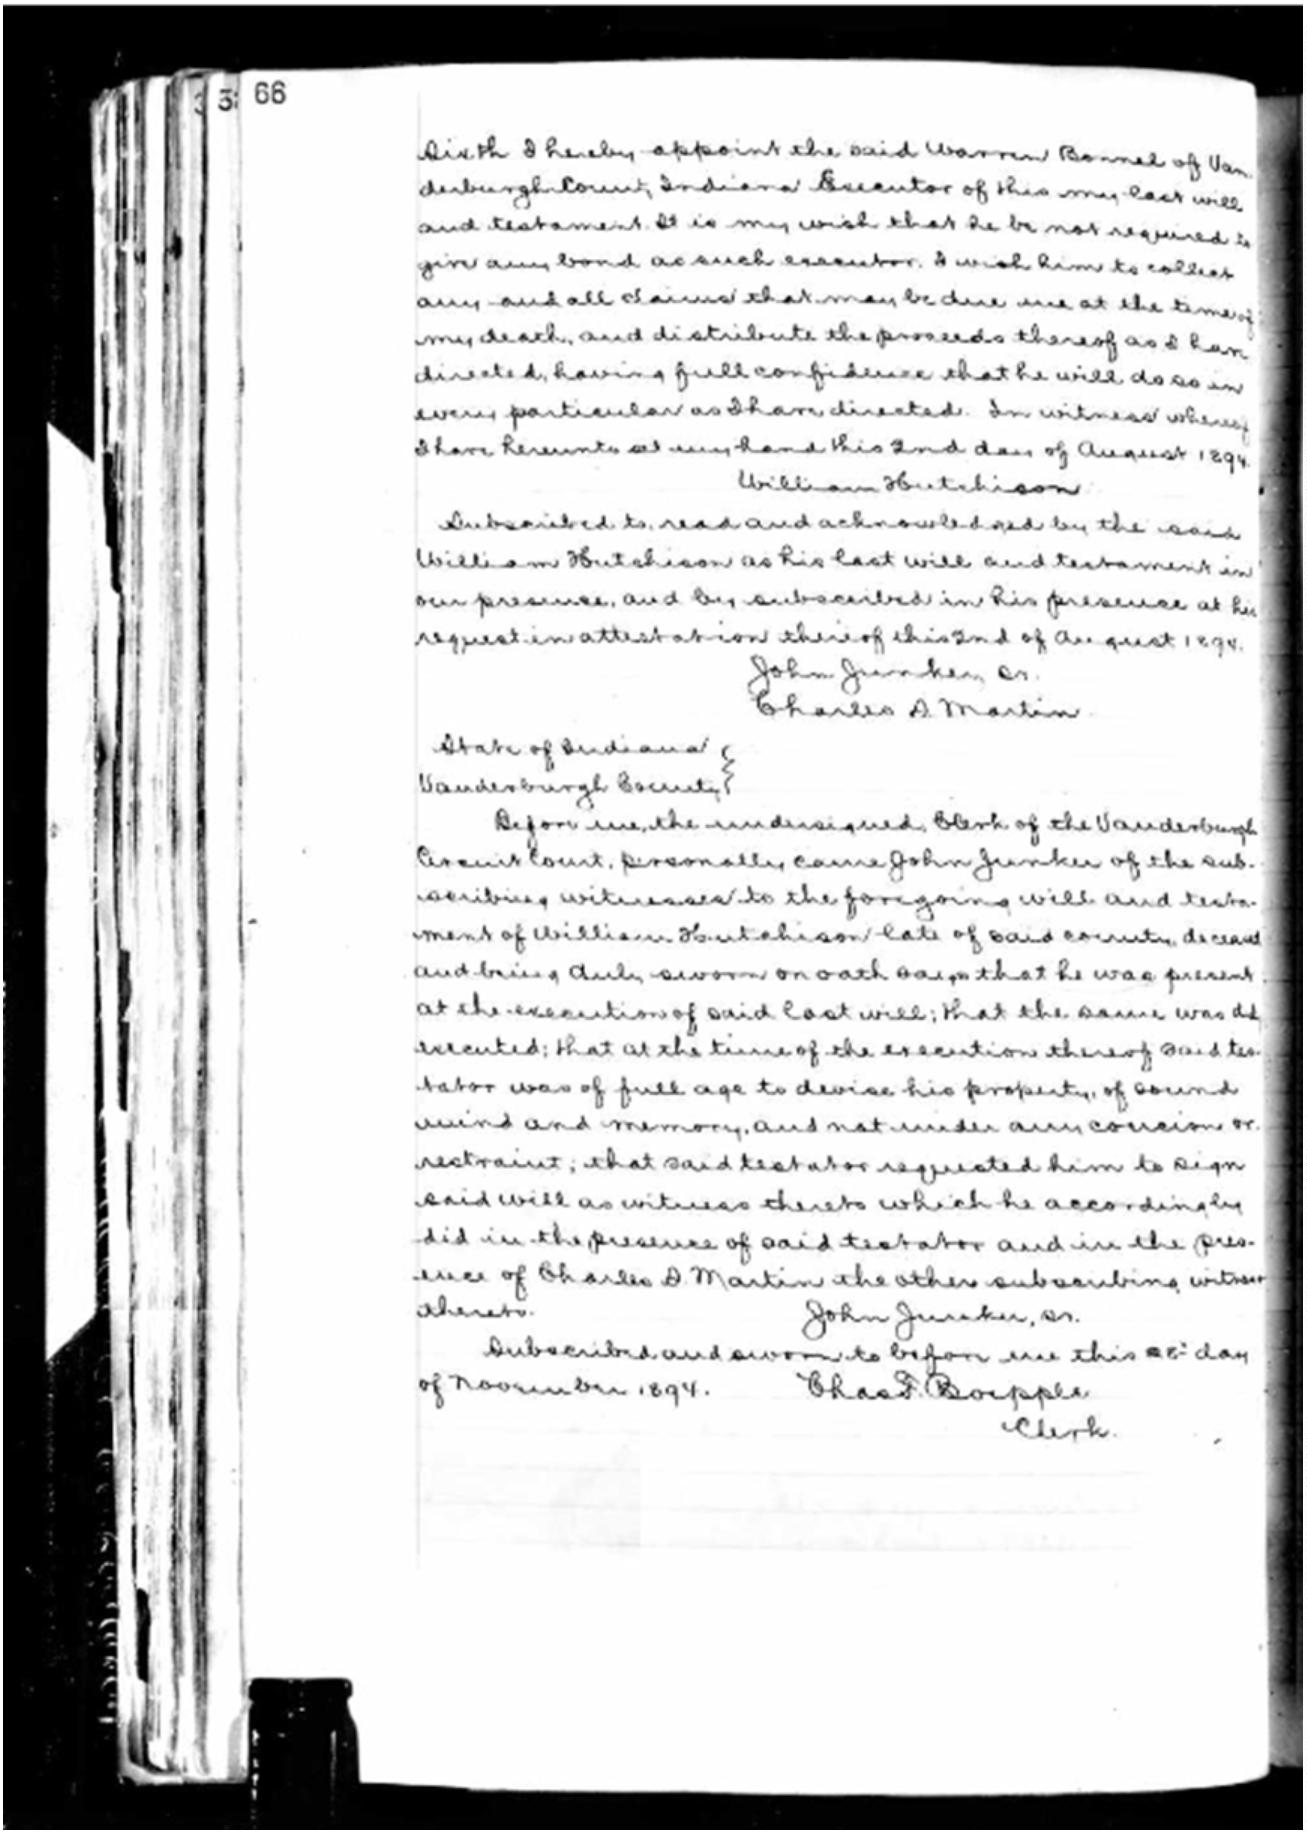 66
Sixth I hereby appoint the said Warren Bonnel of Van
derburgh County Indiana Executor of this my last will
and testament. It is my wish that he be not required to
give any bond as such executor. I wish him to collect
any and all claims that may be due me at the time of
my death, and distribute the proceeds thereof as I have
directed, having full confidence that he will do so in
every particular as I have directed. In witness whereof
I have hereunto set my hand this 2nd day of August 1894.
William Hutchison
Subscribed to, read and acknowledged by the said
William Hutchison as his last will and testament in
our presence, and by subscribed in his presence at his
request in attestation thereof this 2nd of August 1894.
John Junker, sr.
Charles D. Martin
State of Indiana
Vanderburgh County
Before me, the undersigned, Clerk of the Vanderburgh
Circuit Court, personally came John Junker of the sub-
scribing witnesses to the foregoing will and testa-
ment of William Hutchison late of said county, deceased
and being duly sworn on oath says that he was present
at the execution of said last will; that the same was
executed; that at the time of the execution thereof said tes-
tator was of full age to devise his property, of sound
mind and memory, and not under any coercion or
restraint; that said testator requested him to sign
said will as witness thereto which he accordingly
did in the presence of said testator and in the pres-
ence of Charles D. Martin the other subscribing witness
thereto. John Junker, sr.
Subscribed and sworn to before me this day
of November 1894. Chas. F. Boepple
Clerk.